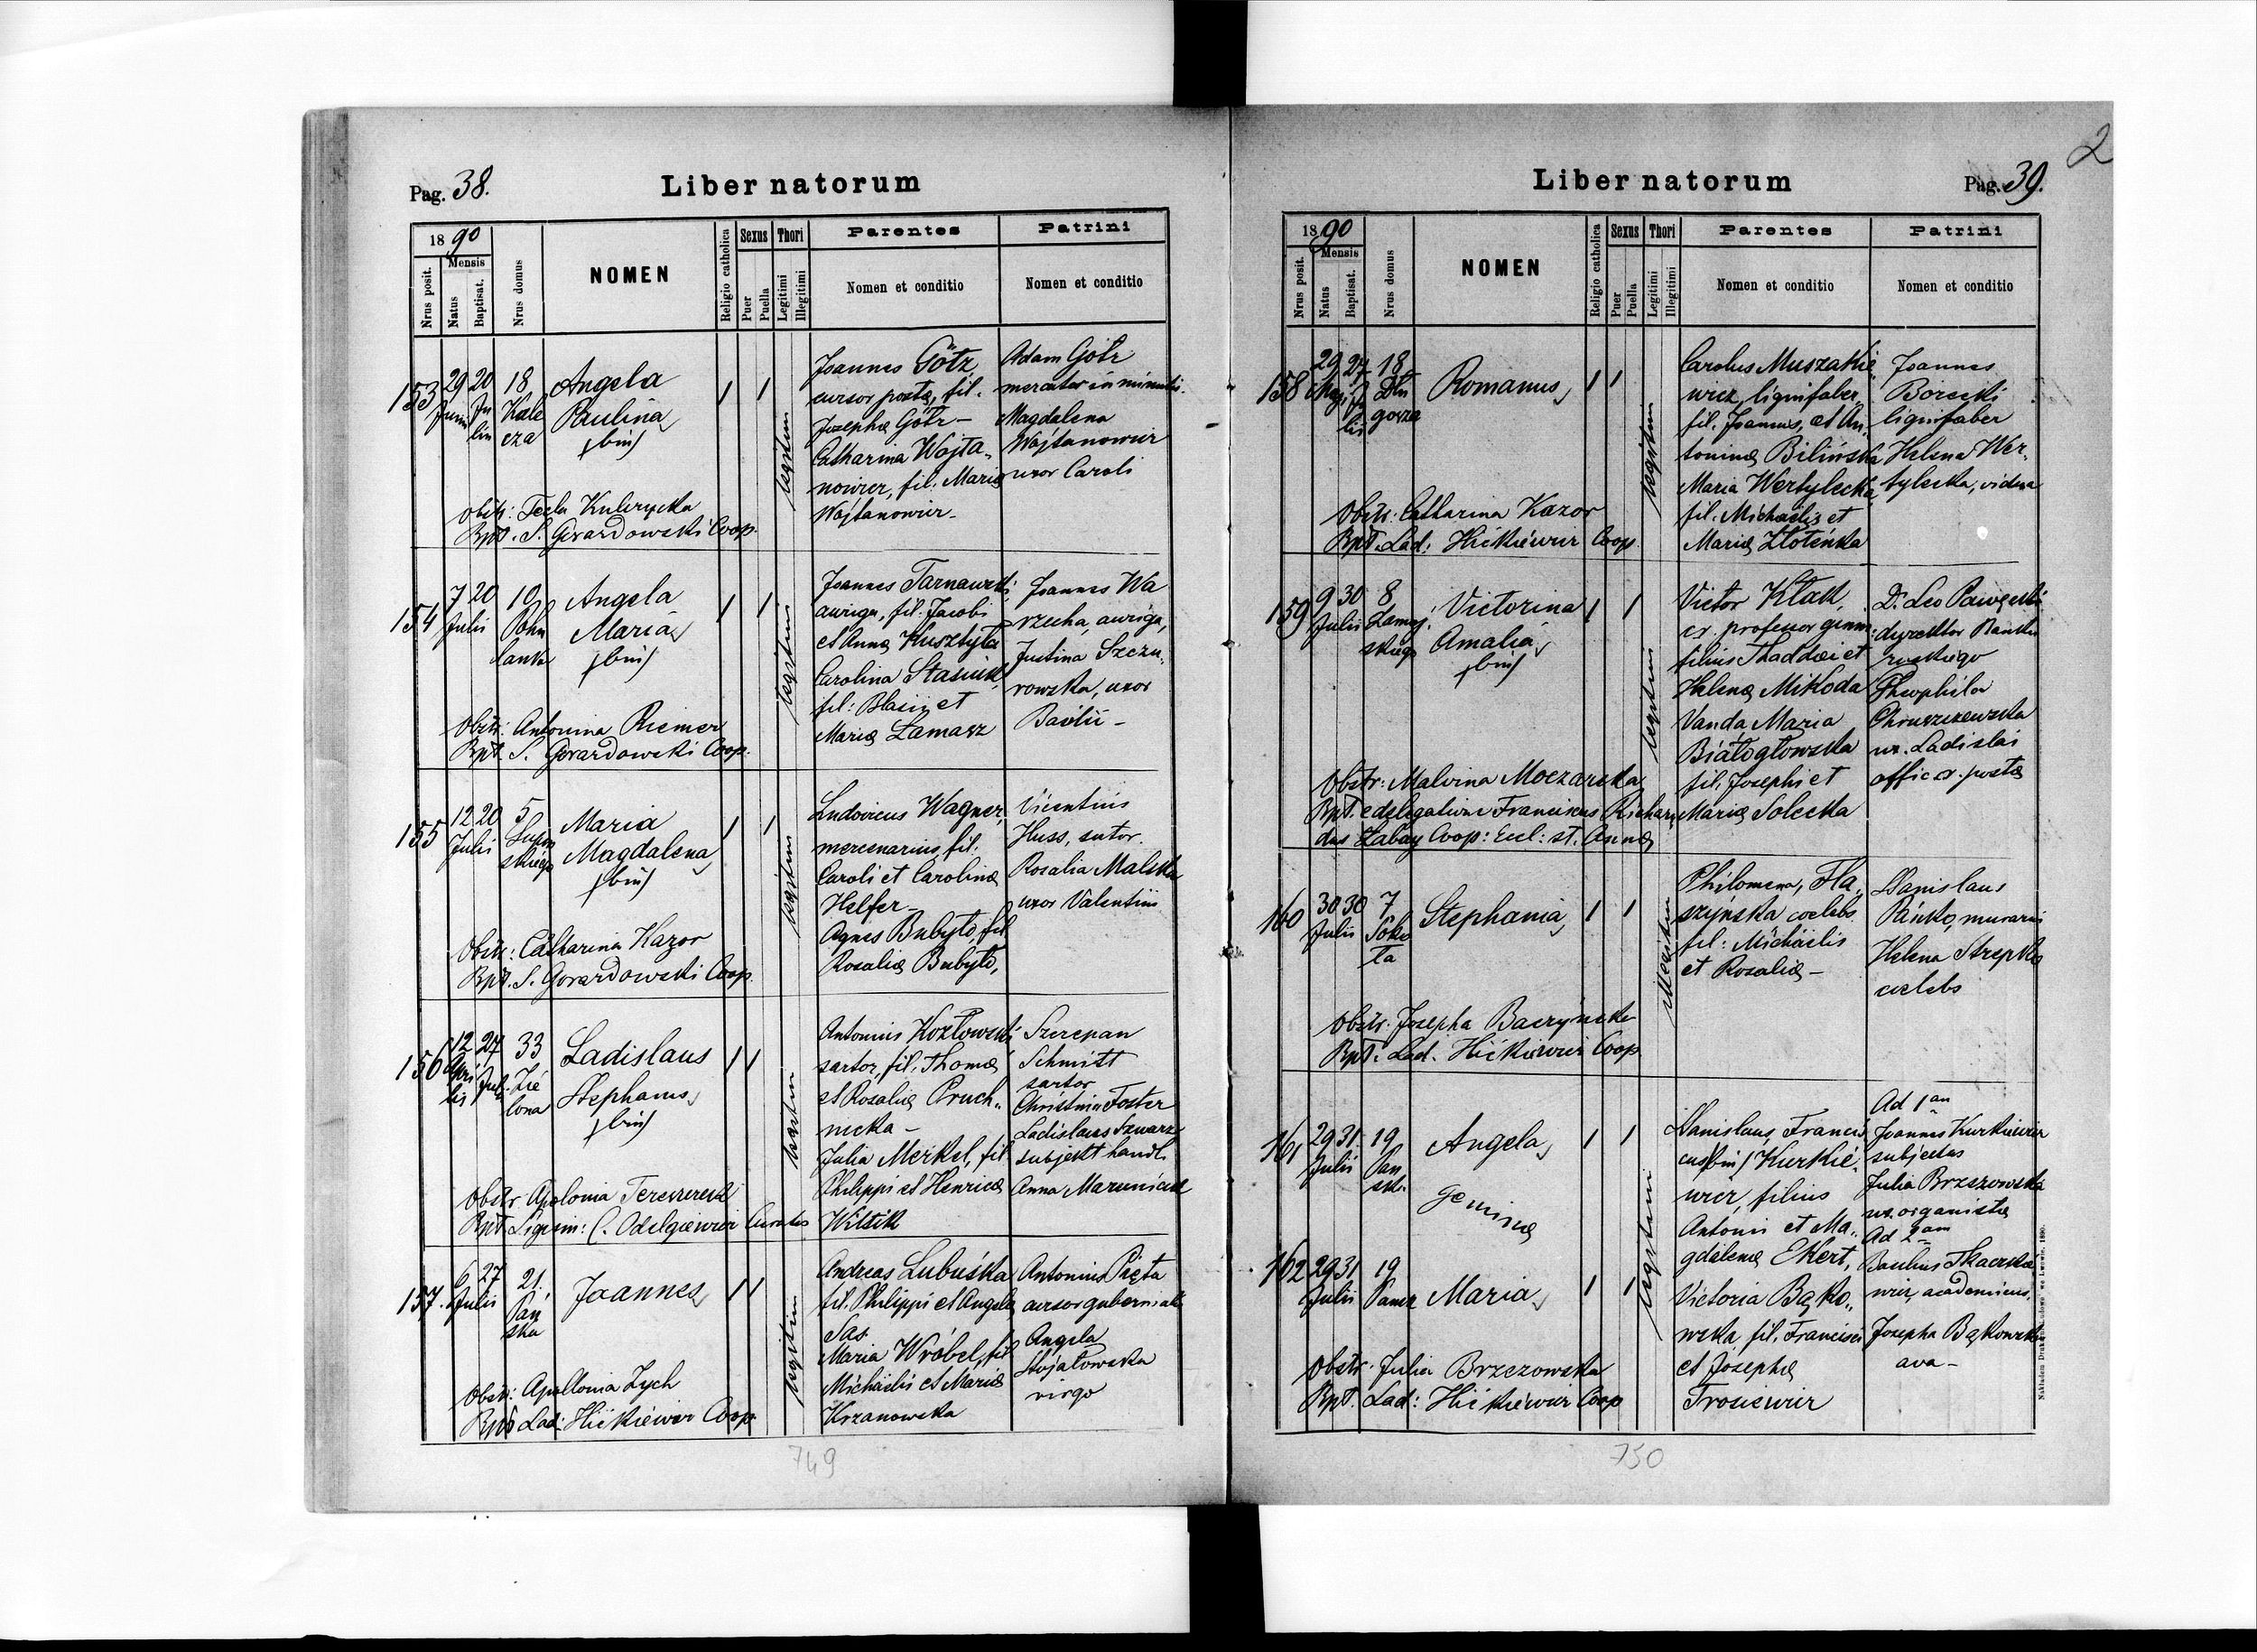 2
Pag. 38.
Liber natorum
18 90
Mensis
Nrus posit.
Natus
Baptisat.
Nrus domus
NOMEN
Religio catholica
Sexus
Puer
Puella
Thori
Legitimi
Illegitimi
Parentes
Nomen et conditio
Patrini
Nomen et conditio
153
29 Junii
20 Julii
18 Kalecza
Angela
Paulina
(bin)
legitim
Joannes Götz
cursor postae, fil.
Josephae Götz –
Catharina Wojta„
nowicz, fil. Mariae
Wojtanowicz –
Adam Götz
mercator
Magdalena
Wojtanowicz
uxor Caroli
Obstr: Tecla Kulczycka
Bpt. S. Gorardowski Coop.
154
7 Julii
20
10
Angela
Maria
(bin)
legitim
Joannes Tarnawski
auriga, fil. Jacobi
et Annae Kusztyła
Carolina Stasiuk
fil: Blasii et
Mariae Lamasz
Joannes Wa
rzecha, auriga,
Justina Szczu„
rowska, uxor
Basilii –
Obstr: Antonina Riemer
Bpt. S. Gorardowski Coop.
155
12 Julii
20
5
Maria
Magdalena
(bin)
legitim
Ludovicus Wagner,
mercenarius, fil.
Caroli et Carolinae
Helfer –
Agnes Bubyło, fil
Rosaliae Bubyło,
Vicentius
Huss, sutor.
Rosalia Malska
uxor Valentini
Obstr: Catharina Kazor
Bpt. S. Gorardowski Coop.
156
12 Aprilis
27 Jul.
33 Zielona
Ladislaus
Stephanus
(bin)
legitim
Antonius Kozłowski
sartor, fil. Thomae
et Rosaliae Pruch„
nicka –
Julia Merkel, fil
Philippi et Henricae
Witsik
Szczepan
Schmitt
sartor
Christina Foster
Ladislaus Szwarz
subjekt handl.
Anna Maruniak
Obstr. Apolonia
Bpt. Curatus
157.
6 Julii
27
21. Pańska
Joannes
legitim
Andreas Lubuśka
fil. Philippi et Angelae
Sas.
Maria Wróbel, fil
Michaelis et Mariae
Krzanowska
Antonius Pięta
cursor gubernial.
Angela
Stojałowska
virgo
Obstr: Apollonia Zych
Bpt. Lad: Hićkiewicz Coop.
749
Liber natorum
Pag. 39.
18 90
Mensis
Nrus posit.
Natus
Baptisat.
Nrus domus
NOMEN
Religio catholica
Sexus
Puer
Puella
Thori
Legitimi
Illegitimi
Parentes
Nomen et conditio
Patrini
Nomen et conditio
158
29
27
18
Romanus
legitim
Carolus Muszakie
wicz, lignifaber,
fil. Joannis, et An„
toninae Bilińska
Maria Wertylecka,
fil. Michaelis et
Mariae Złoteńka
Joannes
Borecki
lignifaber
Helena Wer„
tylecka, vidua
Obstr: Catharina Kazor
Bpt. Lad: Hićkiewicz Coop.
159
9 Julii
30
8
Victorina
Amalia
(bin)
legitim
Victor Kłak,
cs. professor gimn.
filius Thaddaei et
Helenae Mikoda
Vanda Maria
Białogłowska
fil. Josephi et
Mariae Solecka
Dr. Leo Pawęcki
dyrektor Banku
ruskiego
Theophila
Chruszczewska
ux. Ladislai
offic. postae
Obstr: Malvina Moczarska
Bpt. e delegatione Franciscus Richar
dus Zabay Coop: Eccl: st. Annae
160
30 Julii
30
7
Stephania
illegitim
Philomena, Fla„
szyńska coelebs
fil: Michaelis
et Rosaliae –
Stanislaus
Pańko, murari
Helena Strepka
coelebs
Obstr. Josepha Baczyńska
Bpt. Lad. Hićkiewicz Coop
161
29 Julii
31.
19 Pansk.
Angela
Geminae
162
29 Julii
31
19
Maria
legitim
Stanislaus, Francis
cus (bin) Kurkie„
wicz, filius
Antonii et Ma„
gdalenae Ekert,
Victoria Bąko„
wska, fil. Francisci
et Josephae
Trosiewicz
Ad 1am
Joannes Kurkiewicz
subjectus
Julia Brzezowska
ux. organistae
Ad 2am
Basilius Tkaczkie
wicz, academicus.
Josepha Bąkowska
ava –
Obstr: Julia Brzezowska
Bpt. Lad: Hićkiewicz Coop
750